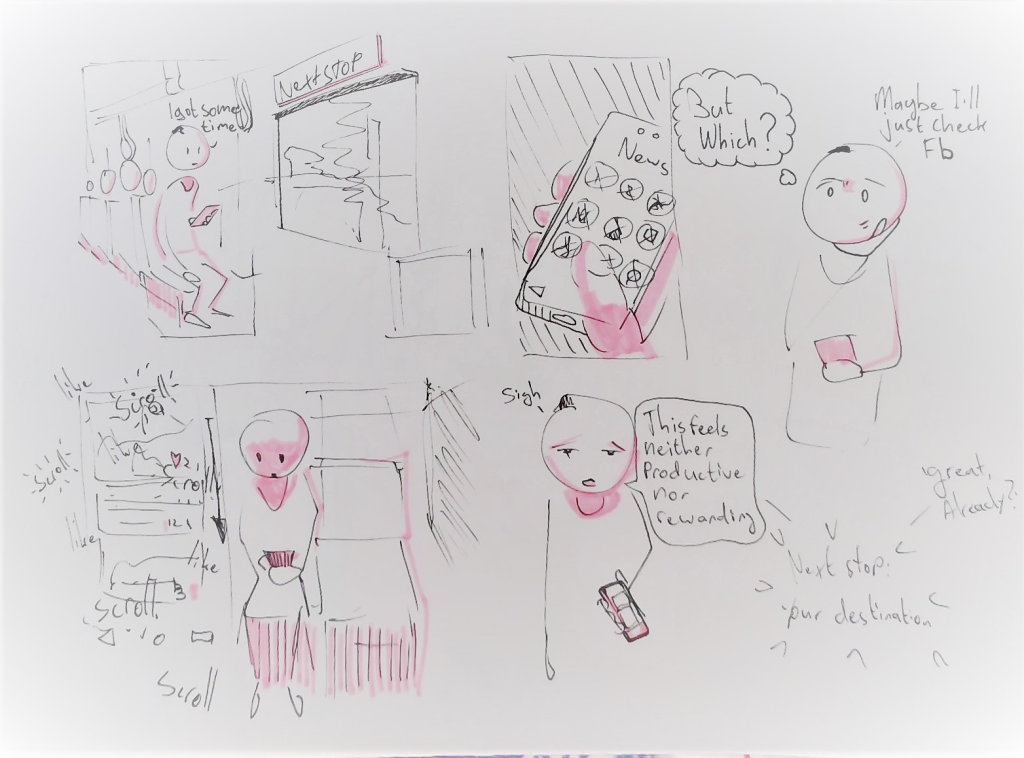 I got some
time
Next STOP
News
But
Which?
Maybe I'll
just check
Fb
like
Scroll
like
Scroll
2
Scroll
121
like
like
3
Scroll
Scroll
Sigh
This feels
neither
Productive
nor
rewarding
great,
Already?
Next stop:
your destination